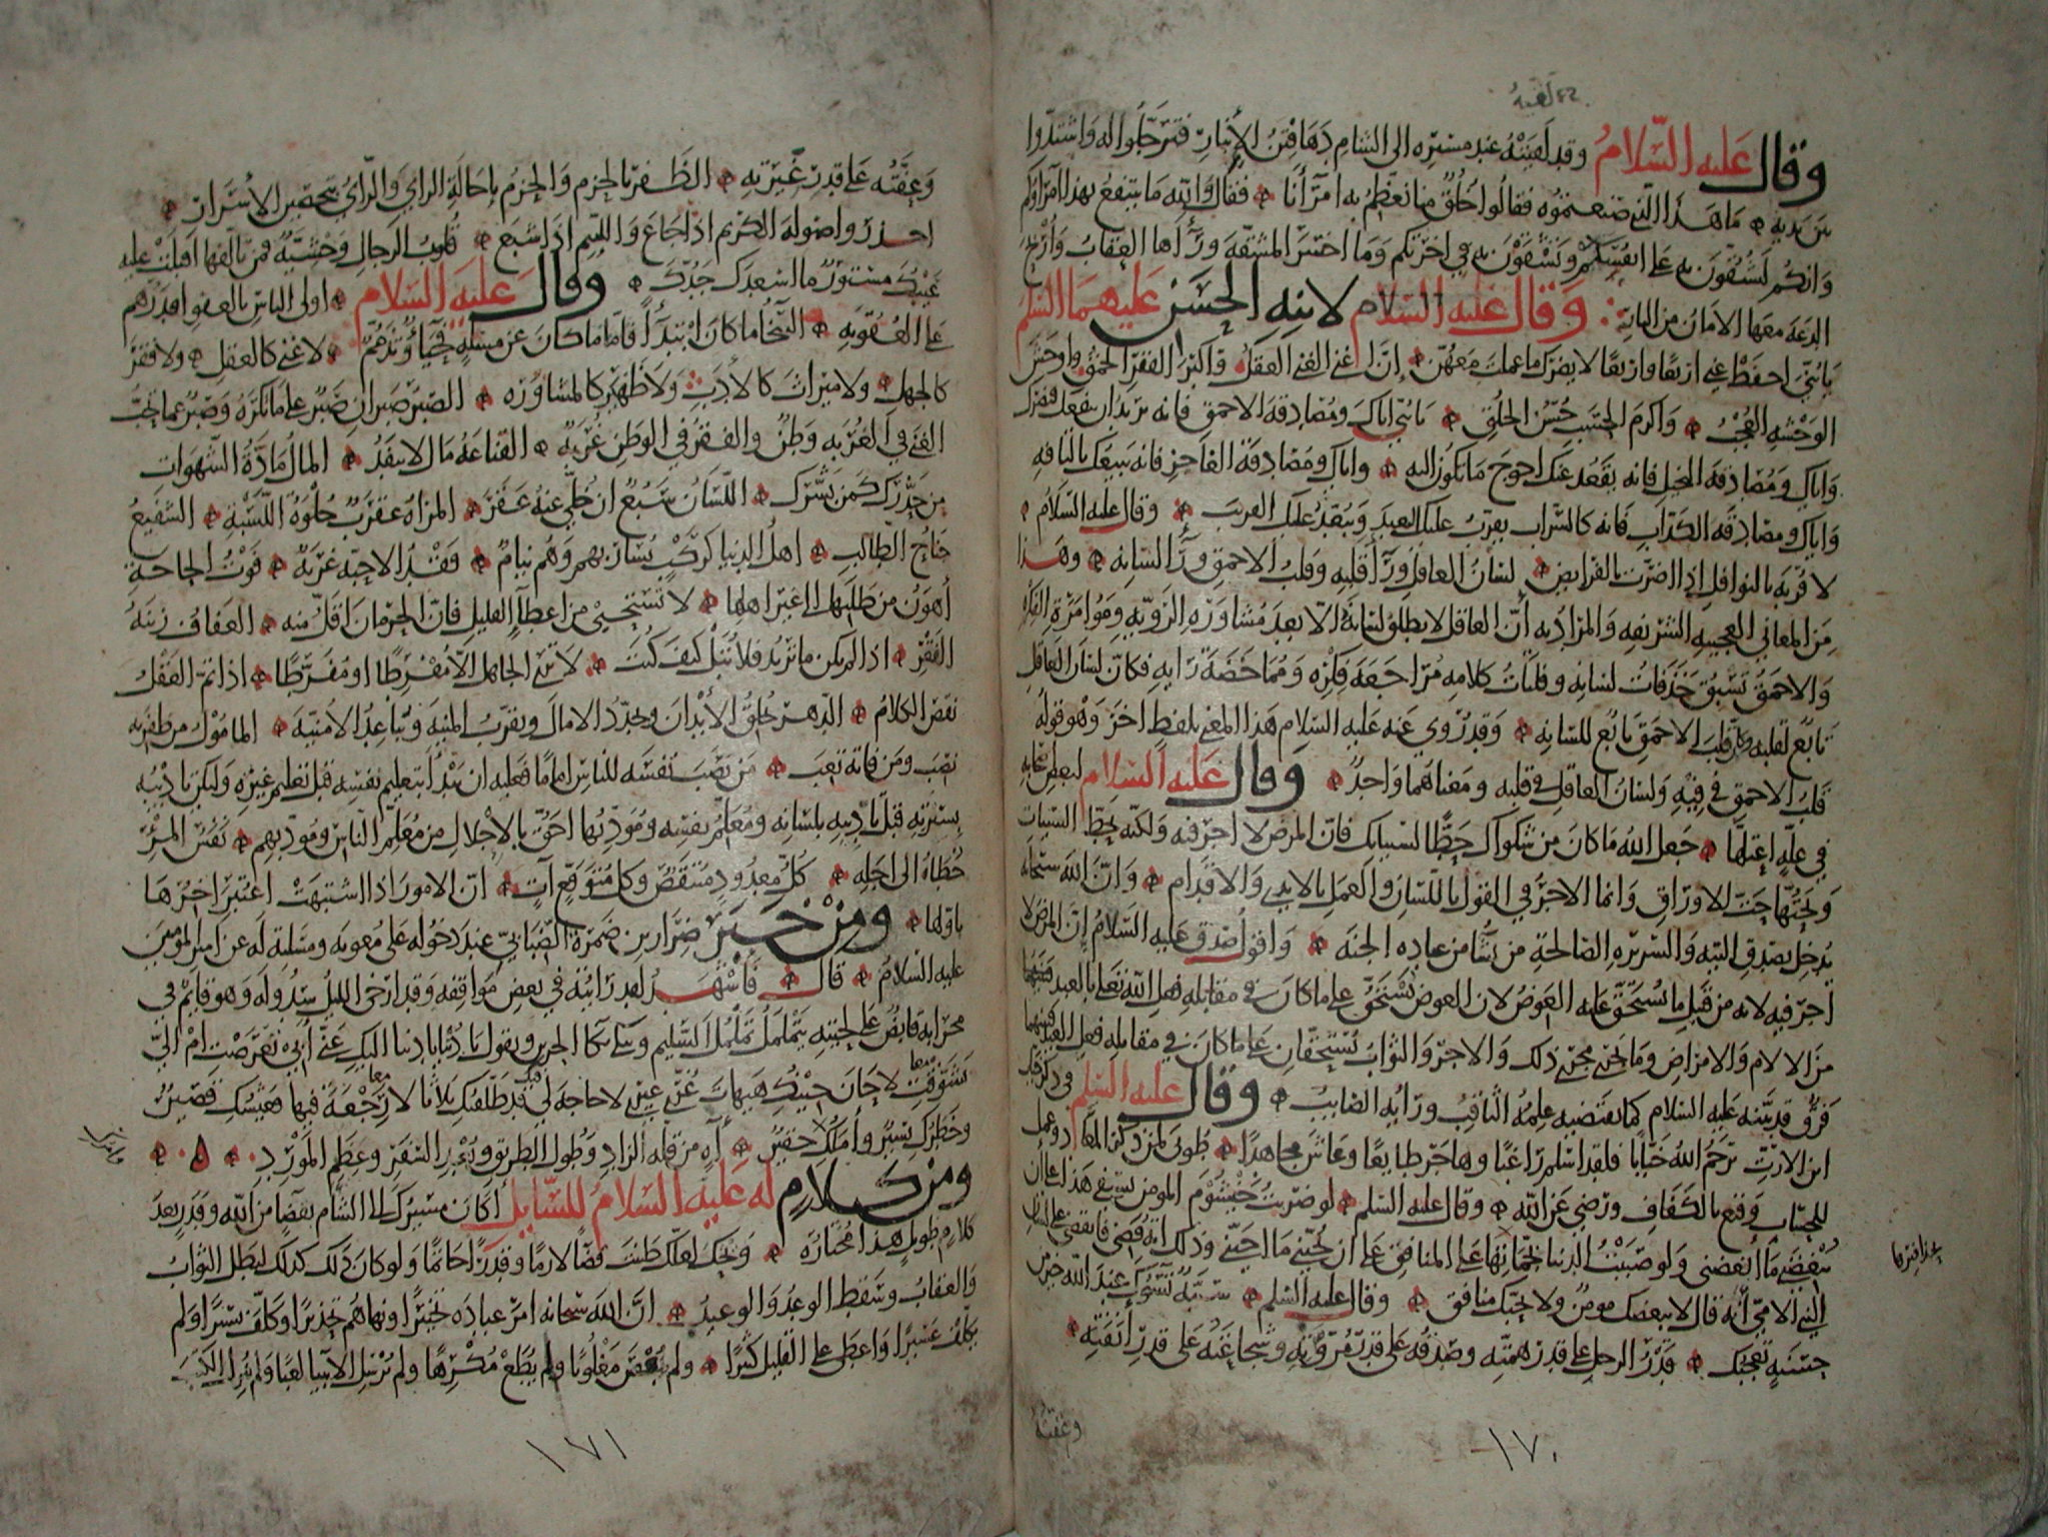 لقيه
وقال عليه السلام وقد لقيته عند مسيره الى الشام دهاقين الأنبار فترجلوا له واشتدوا
بين يديه ما هذا الذي صنعتموه فقالوا خلق منا نعظم به امرآنا فقال والله ما ينتفع بهذا امراؤكم
وانكم لتشقون به على انفسكم وتشقون به في اخرتكم وما اخسر المشقة وراها العقاب واربح
الدعة معها الامان من النار وقال عليه السلام لابنه الحسن عليهما السلم
يا بني احفظ عني اربعا واربعا لا يضرك ما عملت معهن إن اغنى الغنى العقل واكبر الفقر الحمق واوحش
الوحشة العجب واكرم الحسب حسن الخلق يا بني اياك ومصادقة الاحمق فانه يريد ان ينفعك فيضرك
واياك ومصادقة البخيل فانه يقعد عنك احوج ما تكون اليه واياك ومصادقة الفاجر فانه يبيعك بالتافه
واياك ومصادقة الكذاب فانه كالسراب يقرب عليك البعيد ويبعد عليك القريب وقال عليه السلام
لا قربة بالنوافل اذا اضرت بالفرايض لسان العاقل ورآ قلبه وقلب الاحمق ورآ لسانه وهذا
من المعاني العجيبة الشريفة والمراد به أن العاقل لا يطلق لسانه الا بعد مشاورة الروية ومؤامرة الفكرة
والاحمق تسبق حذفات لسانه وفلتات كلامه مراجعة فكره ومماخضة رايه فكان لسان العاقل
تابع لقلبه وكان قلب الاحمق تابع للسانه وقد روي عنه عليه السلام هذا المعنى بلفظ اخر وهو قوله
قلب الاحمق في فيه ولسان العاقل في قلبه ومعناهما واحد وقال عليه السلام لبعض اصحابه
في علة اعتلها جعل الله ما كان من شكواك حطا لسيياتك فان المرض لا اجر فيه ولكنه يحط السيات
ويحتها حت الاوراق وانما الاجر في القول باللسان والعمل بالايدي والاقدام وان الله سبحانه
يدخل بصدق النية والسريرة الصالحة من يشا من عباده الجنة واقول صدق عليه السلام إن المرض لا
اجر فيه لانه من قبيل ما يستحق عليه العوض لان العوض يستحق على ما كان في مقابلة فعل الله تعالى بالعبد
من الالام والامراض وما يجري مجرى ذلك والاجر والثواب يستحقان على ما كان في مقابلة فعل العبد فبينهما
فرق قد بينه عليه السلام كما يقتضيه علمه الثاقب ورايه الصايب وقال عليه السلم في ذكر خباب
ابن الارت يرحم الله خبابا فلقد اسلم راغبا وهاجر طايعا وعاش مجاهدا طوبى لمن ذكر المعاد وعمل
للحساب وقنع بالكفاف ورضي عن الله وقال عليه السلم لو ضربت خيشوم المومن بسيفي هذا على ان
يبغضني ما ابغضني ولو صببت الدنيا بجماتها على المنافق على ان يحبني ما احبني وذلك انه قضي فانقضى على لسان
النبي الامي أنه قال لا يبغضك مومن ولا يحبك منافق وقال عليه السلم سيئة تسؤك عند الله خير من
حسنة تعجبك قدر الرجل على قدر همته وصدقه على قدر مروته وشجاعته على قدر أنفته
وعفته
١٧٠
وعفته على قدر غيرته الظفر بالحزم والحزم بإحالة الراي والراي بتحصين الاسرار
احذروا صولة الكريم اذا جاع واللئيم اذا شبع قلوب الرجال وحشية فمن تالفها اقبلت عليه
عيبك مستور ما اسعدك جدك وقال عليه السلام اولى الناس بالعفو اقدرهم
على العقوبة السخا ما كان ابتدأ فاما ما كان عن مسئلة فحيا وتذمم لا غنى كالعقل ولا فقر
كالجهل ولا ميراث كالادب ولا ظهير كالمشاورة الصبر صبران صبر على ما تكره وصبر عما تحب
الغنى في الغربة وطن والفقر في الوطن غربة القناعة مال لا ينفد المال مادة الشهوات
من حذرك كمن بشرك اللسان سبع ان خلي عنه عقر المراة عقرب حلوة اللسبة الشفيع
جناح الطالب اهل الدنيا كركب يسار بهم وهم نيام فقد الاحبة غربة فوت الحاجة
أهون من طلبها الى غير اهلها لا تستحيي من اعطآ القليل فان الحرمان اقل منه العفاف زينة
الفقر اذا لم يكن ما تريد فلا تبل كيف كنت لا ترى الجاهل الا مفرطا او مفرطا اذا تم العقل
نقص الكلام الدهر يخلق الابدان ويجدد الامال ويقرب المنية ويباعد الامنية المامول من ظفر به
نصب ومن فاته تعب من نصب نفسه للناس اماما فعليه ان يبدأ بتعليم نفسه قبل تعليم غيره وليكن تاديبه
بسيرته قبل تاديبه بلسانه ومعلم نفسه ومودبها احق بالاجلال من معلم الناس ومودبهم نفس المرء
خطاه الى اجله كل معدود منتقص وكل متوقع آت ان الامور اذا اشتبهت اعتبر اخرها
باولها ومن خبر ضرار بن ضمرة الضبابي عند دخوله على معوية ومسئلته له عن امير المومنين
عليه السلام قال فاشهد لقد رايته في بعض مواقفه وقد ارخى الليل سدوله وهو قايم في
محرابه قابض على لحيته يتململ تململ السليم ويبكي بكآ الحزين ويقول يا دنيا يا دنيا اليك عني أبي تعرضت ام الي
تشوقت لا حان حينك هيهات غري غيري لا حاجة لي فيك قد طلقتك ثلاثا لا رجعة فيها فعيشك قصير
وخطرك يسير وأملك حقير آه من قلة الزاد وطول الطريق وبعد السفر وعظم المورد
ومن كلام له عليه السلام للسايل أكان مسيرك الى الشام بقضا من الله وقدر بعد
كلام طويل هذا مختاره ويحك لعلك ظننت قضا لازما وقدرا حاتما ولو كان ذلك كذلك لبطل الثواب
والعقاب وسقط الوعد والوعيد ان الله سبحانه امر عباده تخييرا ونهاهم تحذيرا وكلف يسيرا ولم
يكلف عسيرا واعطى على القليل كثيرا ولم يعص مغلوبا ولم يطع مكرها ولم يرسل الانبيا لعبا ولم ينزل الكتب
١٧١